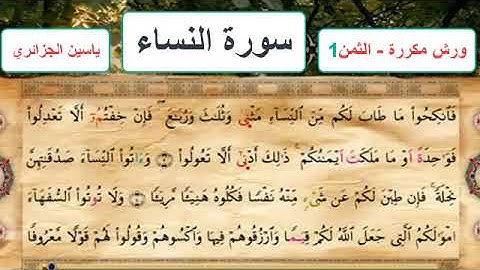 سورة النساء
ورش مكررة - الثمن 1
ياسين الجزائري
فَانكِحُوا مَا طَابَ لَكُم مِّنَ اَلنِّسَآءِ مَثْنۭىٰ وَثُلَٰثَ وَرُبَٰعَ فَإِنْ خِفْتُمُۥٓ أَلَّا تَعْدِلُوا
فَوَٰحِدَةً اَوْ مَا مَلَكَتَ اَيْمَٰنُكُمْ ذَٰلِكَ أَدْنۭىٰٓ أَلَّا تَعُولُوا ۝ وَءَاتُوا اُلنِّسَآءَ صَدُقَٰتِهِنَّ
نِحْلَةً فَإِن طِبْنَ لَكُمْ عَن شَےْءٍ مِّنْهُ نَفْسًا فَكُلُوهُ هَنِيٓـًٔا مَّرِيٓـًٔا ۝ وَلَا تُوتُوا اُلسُّفَهَآءَ
امْوَٰلَكُمُ اُلتِے جَعَلَ اَللَّهُ لَكُمْ قِيَمًا وَارْزُقُوهُمْ فِيهَا وَاكْسُوهُمْ وَقُولُوا لَهُمْ قَوْلًا مَّعْرُوفًا